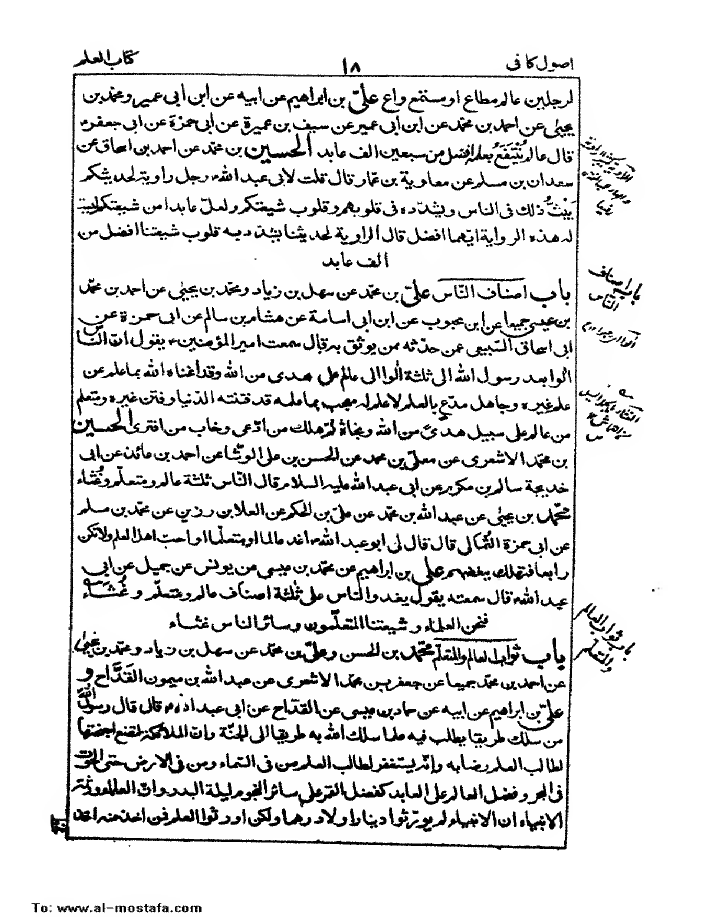 اصول كافى ١٨ كتاب العلم
لرجلين عالم مطاع او مستمع واع علىّ بن ابراهيم عن ابيه عن ابن ابى عمير ومحمد بن
يحيى عن احمد بن محمد عن ابن ابى عمير عن سيف بن عميرة عن ابى حمزة عن ابى جعفر ع
قال عالم يُنتفع بعلمه افضل من سبعين الف عابد الحسين بن محمد عن احمد بن اسحاق عن
سعدان بن مسلم عن معاوية بن عمار قال قلت لابى عبد الله ع رجل راوية لحديثكم
يبثّ ذلك فى الناس ويشدّده فى قلوبهم وقلوب شيعتكم ولعلّ عابدا من شيعتكم ليست
له هذه الرواية ايّهما افضل قال الراوية لحديثنا يشدّد به قلوب شيعتنا افضل من
الف عابد
باب اصناف النّاس علىّ بن محمد عن سهل بن زياد ومحمد بن يحيى عن احمد بن محمّد
بن عيسى جميعا عن ابن محبوب عن ابى اسامة عن هشام بن سالم عن ابى حمزة عن
ابى اسحاق السّبيعى عمن حدّثه ممن يوثق به قال سمعت امير المؤمنين ع يقول انّ النّاس
آلوا بعد رسول الله الى ثلثة آلوا الى عالم على هدى من الله وقد اغناه الله بما علم عن
علم غيره وجاهل مدّع بالعلم لا علم له معجب بما عنده قد فتنته الدّنيا وفتن غيره ومتعلم
من عالم على سبيل هدىً من الله ونجاة ثم هلك من ادّعى وخاب من افترى الحسين
بن محمّد الاشعرى عن معلى بن محمد عن الحسن بن على الوشا عن احمد بن عائذ عن ابى
خديجة سالم بن مكرم عن ابى عبد الله عليه السلام قال النّاس ثلثة عالم ومتعلّم وغُثاء
محمّد بن يحيى عن عبد الله بن محمد عن علىّ بن الحكم عن العلا بن رزين عن محمّد بن مسلم
عن ابى حمزة الثّمالى قال قال لى ابو عبد الله ع اغد عالما او متعلّما او احب اهل العلم ولا تكن
رابعا فتهلك ببغضهم على بن ابراهيم عن محمّد بن عيسى عن يونس عن جميل عن ابى
عبد الله قال سمعته يقول يغدو الناس على ثلثة اصناف عالم ومتعلّم وغُثاء
فنحن العلماء وشيعتنا المتعلّمون وسائر الناس غثاء
باب ثواب العالم والمتعلم محمّد بن الحسن وعلىّ بن محمّد عن سهل بن زياد ومحمّد بن يحيى
عن احمد بن محمّد جميعا عن جعفر بن محمّد الاشعرى عن عبد الله بن ميمون القدّاح و
علىّ بن ابراهيم عن ابيه عن حماد بن عيسى عن القدّاح عن ابى عبد الله ع قال قال رسول الله
من سلك طريقا يطلب فيه علما سلك الله به طريقا الى الجنّة وانّ الملائكة لتضع اجنحتها
لطالب العلم رضا به وانّه يستغفر لطالب العلم من فى السّماء ومن فى الارض حتى الحوت
فى البحر وفضل العالم على العابد كفضل القمر على سائر النّجوم ليلة البدر وانّ العلماء ورثة
الانبياء ان الانبياء لم يورّثوا دينارا ولا درهما ولكن اورثوا العلم فمن اخذ منه اخذ
باب اصناف
النّاس
باب ثواب العالم
والمتعلّم
To: www.al-mostafa.com